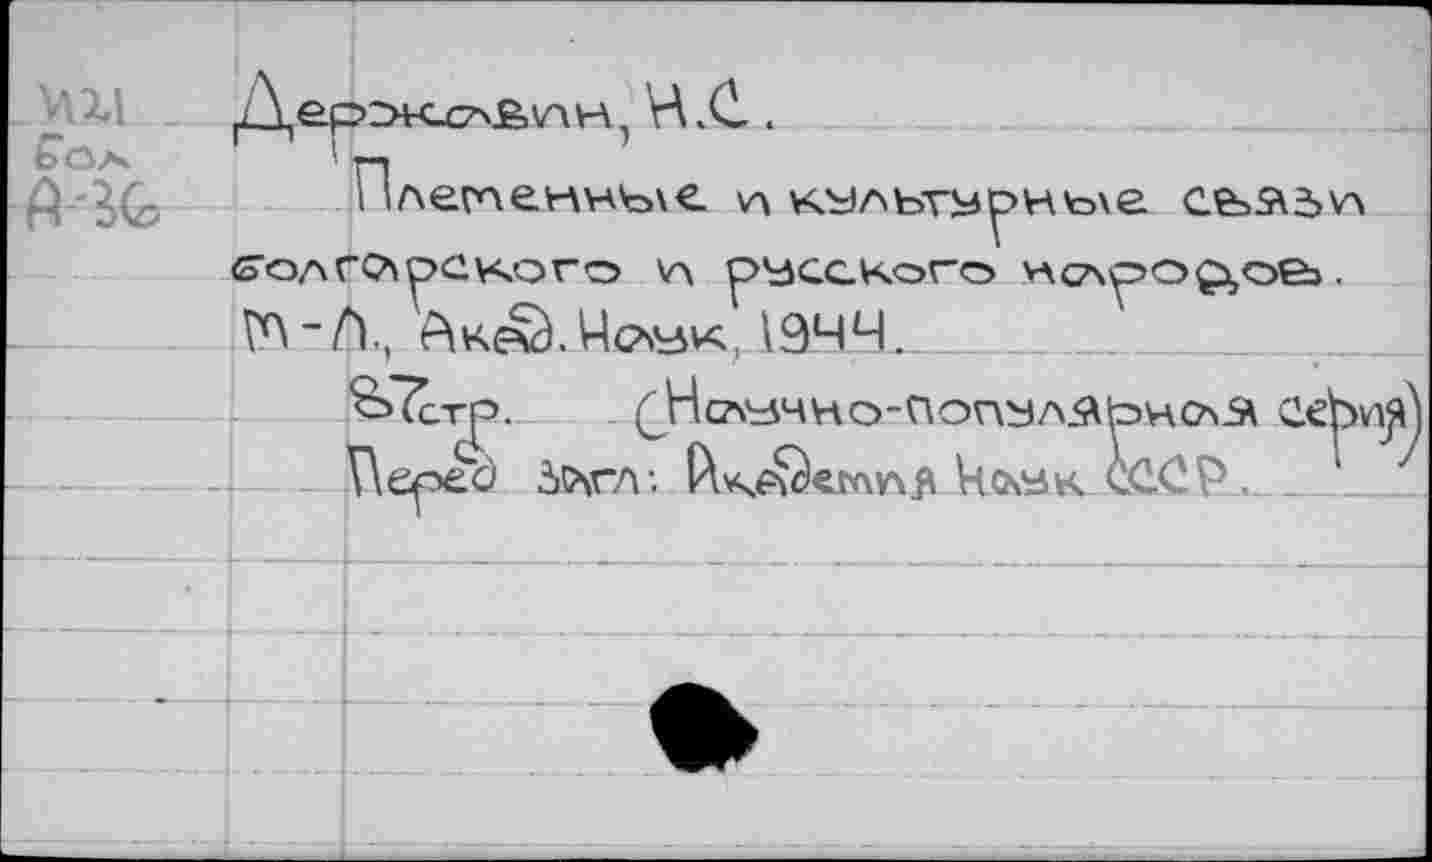 И21
Бол
Д-36
Державин, Н.С.
Племенные и культурные связи
болгарского и русского народов.
М-Л., Акад. Наук, 1944.
87стр. (Научно-популярная серия)
Перед загл: Академия Наук СССР.